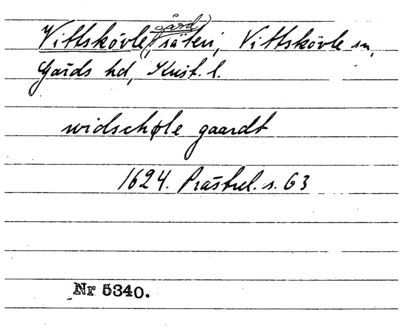 Vittskövle (gård) säteri, Vittskövle sn,
Gärds hd, Krist. l.
widschøle gaardt
1624. Prästrel. s. 63
Nr 5340.